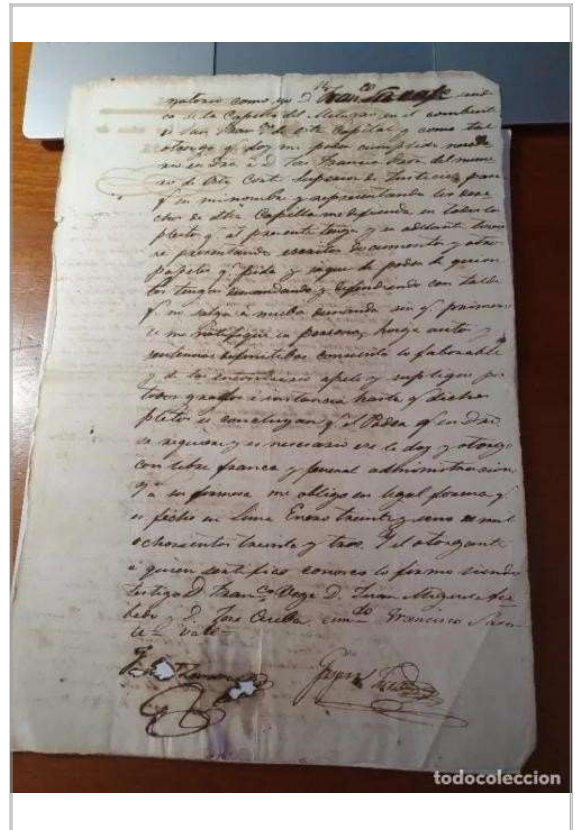 notorio como yo D. Franco
co de la Capilla del Milagro en el combento
de San Franco de esta Capital y como tal
otorgo q. doy mi poder cumplido nece
rio en Dro a D. José Francco del nume
ro de esta Corte Superior de Justicia para
q. en mi nombre y representando los dere
chos de dha Capilla me defienda en todos los
pleitos q. al presente tengo y en adelante
se presentando escritos documentos y otros
papeles q. pida y saque de poder de quien
los tenga demandando y defendiendo con tal
q. no salga a nueba demanda sin q. primero
se me notifique en persona, haiga autos y
sentencias definitibas consienta lo faborable
y de lo en contrario apele y suplique por
todos grados e instancias hasta q. dichos
pleitos se concluyan q. el Poder q. en Dro.
se requiera y es necesario ese le doy y otorgo
con libre franca y general administracion
q. a su firmesa me obligo en legal forma q.
es fecho en Lima Enero treinta y uno de mil
ochocientos treinta y tres. Y el otorgante
a quien sertifico conosco lo firmo siendo
testigos D. Franco Vega D. Juan Miguel
y D. José Francisco
Vale
todocoleccion